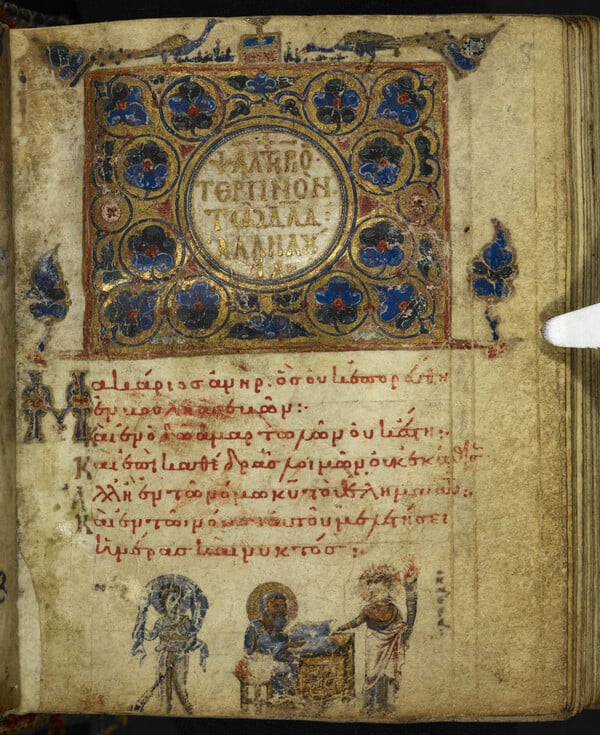 ΤΕΡΠΝΟΝ
ΤΩ ΔΑΔ·
Μακάριος ἀνήρ, ὃς οὐκ ἐπορεύθη
ἐν βουλῆ ἀσεβῶν:
Καὶ ἐν ὁδῶ ἁμαρτωλῶν οὐκ ἔστη:
Καὶ ἐπὶ καθέδρας λοιμῶν οὐκ ἐκάθισεν
Ἀλλ ἢ ἐν τῶ νόμω κυ τὸ θέλημα αὐτοῦ:
Καὶ ἐν τῶ νόμω αὐτοῦ μελετήσει
ἡμέρας καὶ νυκτός: